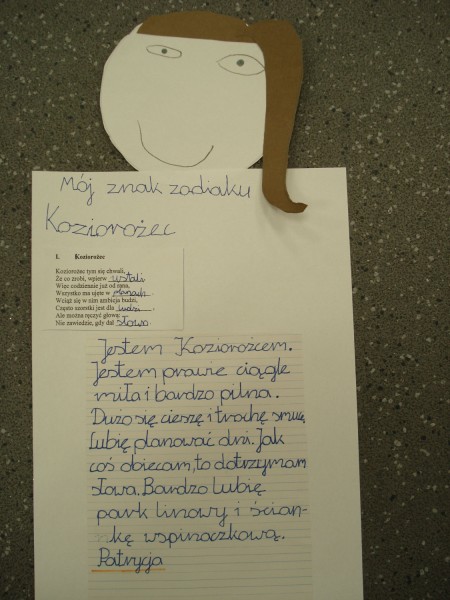 Mój znak zodiaku
Koziorożec
1. Koziorożec
Koziorożec tym się chwali,
Że co zrobi, wpierw ustali
Więc codziennie już od rana,
Wszystko ma ujęte w planach
Wciąż się w nim ambicja budzi,
Często szorstki jest dla ludzi.
Ale można ręczyć głową:
Nie zawiedzie, gdy dał słowo
Jestem Koziorożcem.
Jestem prawie ciągle
miła i bardzo pilna.
Dużo się cieszę i trochę smucę,
Lubię planować dni. Jak
coś obiecam, to dotrzymam
słowa. Bardzo lubię
park linowy i ścian-
kę wspinaczkową.
Patrycja